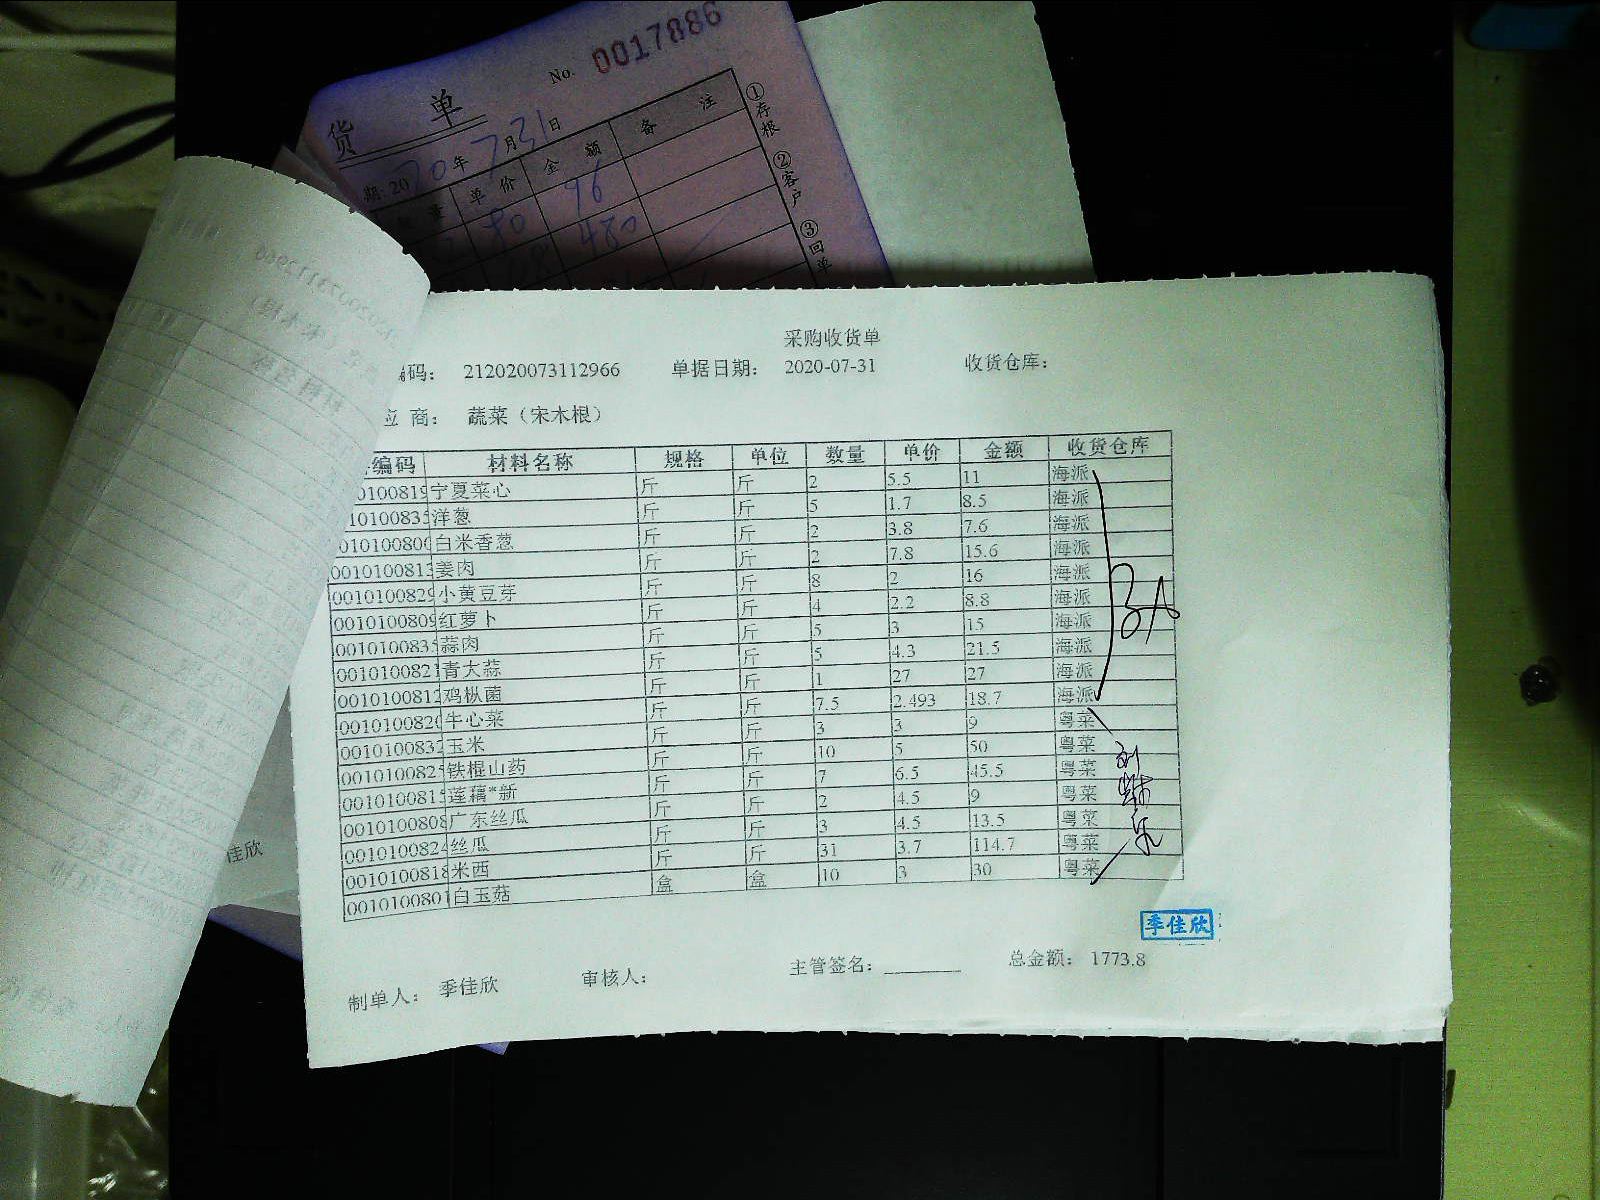 No. 0017886
货 单
期: 2020年7月31日
单价 金额 备注
80 96
480
①存根 ②客户 ③回单
采购收货单
编码: 212020073112966 单据日期: 2020-07-31 收货仓库:
应 商: 蔬菜（宋木根）
编码 材料名称 规格 单位 数量 单价 金额 收货仓库
010100819 宁夏菜心 斤 斤 2 5.5 11 海派
10100835 洋葱 斤 斤 5 1.7 8.5 海派
010100800 白米香葱 斤 斤 2 3.8 7.6 海派
0010100813 姜肉 斤 斤 2 7.8 15.6 海派
0010100829 小黄豆芽 斤 斤 8 2 16 海派
0010100809 红萝卜 斤 斤 4 2.2 8.8 海派
0010100835 蒜肉 斤 斤 5 3 15 海派
0010100821 青大蒜 斤 斤 5 4.3 21.5 海派
0010100812 鸡枞菌 斤 斤 1 27 27 海派
0010100820 牛心菜 斤 斤 7.5 2.493 18.7 海派
0010100832 玉米 斤 斤 3 3 9 粤菜
0010100825 铁棍山药 斤 斤 10 5 50 粤菜
0010100815 莲藕*新 斤 斤 7 6.5 45.5 粤菜
0010100808 广东丝瓜 斤 斤 2 4.5 9 粤菜
0010100824 丝瓜 斤 斤 3 4.5 13.5 粤菜
0010100818 米西 斤 斤 31 3.7 114.7 粤菜
0010100801 白玉菇 盒 盒 10 3 30 粤菜
季佳欣
制单人: 季佳欣 审核人: 主管签名: 总金额: 1773.8
佳欣